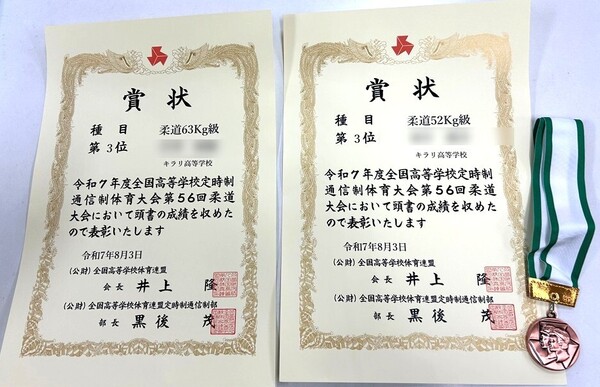 賞状
種目 柔道63Kg級
第3位
キラリ高等学校
令和7年度全国高等学校定時制
通信制体育大会第56回柔道
大会において頭書の成績を収めた
ので表彰いたします
令和7年8月3日
(公財)全国高等学校体育連盟
会長 井上 隆
(公財)全国高等学校体育連盟定時制通信制部
部長 黒後 茂
賞状
種目 柔道52Kg級
第3位
キラリ高等学校
令和7年度全国高等学校定時制
通信制体育大会第56回柔道
大会において頭書の成績を収めた
ので表彰いたします
令和7年8月3日
(公財)全国高等学校体育連盟
会長 井上 隆
(公財)全国高等学校体育連盟定時制通信制部
部長 黒後 茂